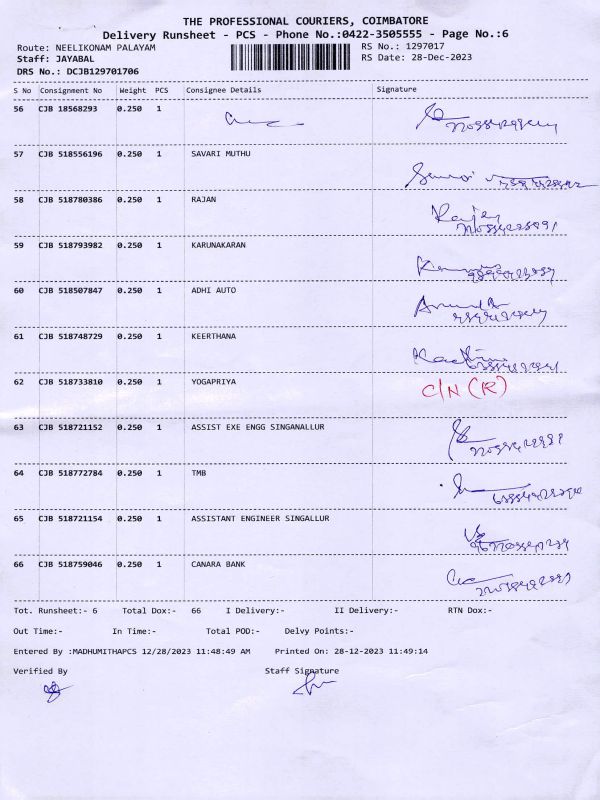 THE PROFESSIONAL COURIERS, COIMBATORE
Delivery Runsheet - PCS - Phone No.:0422-3505555 - Page No.:6
Route: NEELIKONAM PALAYAM RS No.: 1297017
Staff: JAYABAL RS Date: 28-Dec-2023
DRS No.: DCJB129701706
S No Consignment No Weight PCS Consignee Details Signature
56 CJB 18568293 0.250 1
57 CJB 518556196 0.250 1 SAVARI MUTHU
58 CJB 518780386 0.250 1 RAJAN
59 CJB 518793982 0.250 1 KARUNAKARAN
60 CJB 518507847 0.250 1 ADHI AUTO
61 CJB 518748729 0.250 1 KEERTHANA
62 CJB 518733810 0.250 1 YOGAPRIYA C/N (R)
63 CJB 518721152 0.250 1 ASSIST EXE ENGG SINGANALLUR
64 CJB 518772784 0.250 1 TMB
65 CJB 518721154 0.250 1 ASSISTANT ENGINEER SINGALLUR
66 CJB 518759046 0.250 1 CANARA BANK
Tot. Runsheet:- 6 Total Dox:- 66 I Delivery:- II Delivery:- RTN Dox:-
Out Time:- In Time:- Total POD:- Delvy Points:-
Entered By :MADHUMITHAPCS 12/28/2023 11:48:49 AM Printed On: 28-12-2023 11:49:14
Verified By Staff Signature